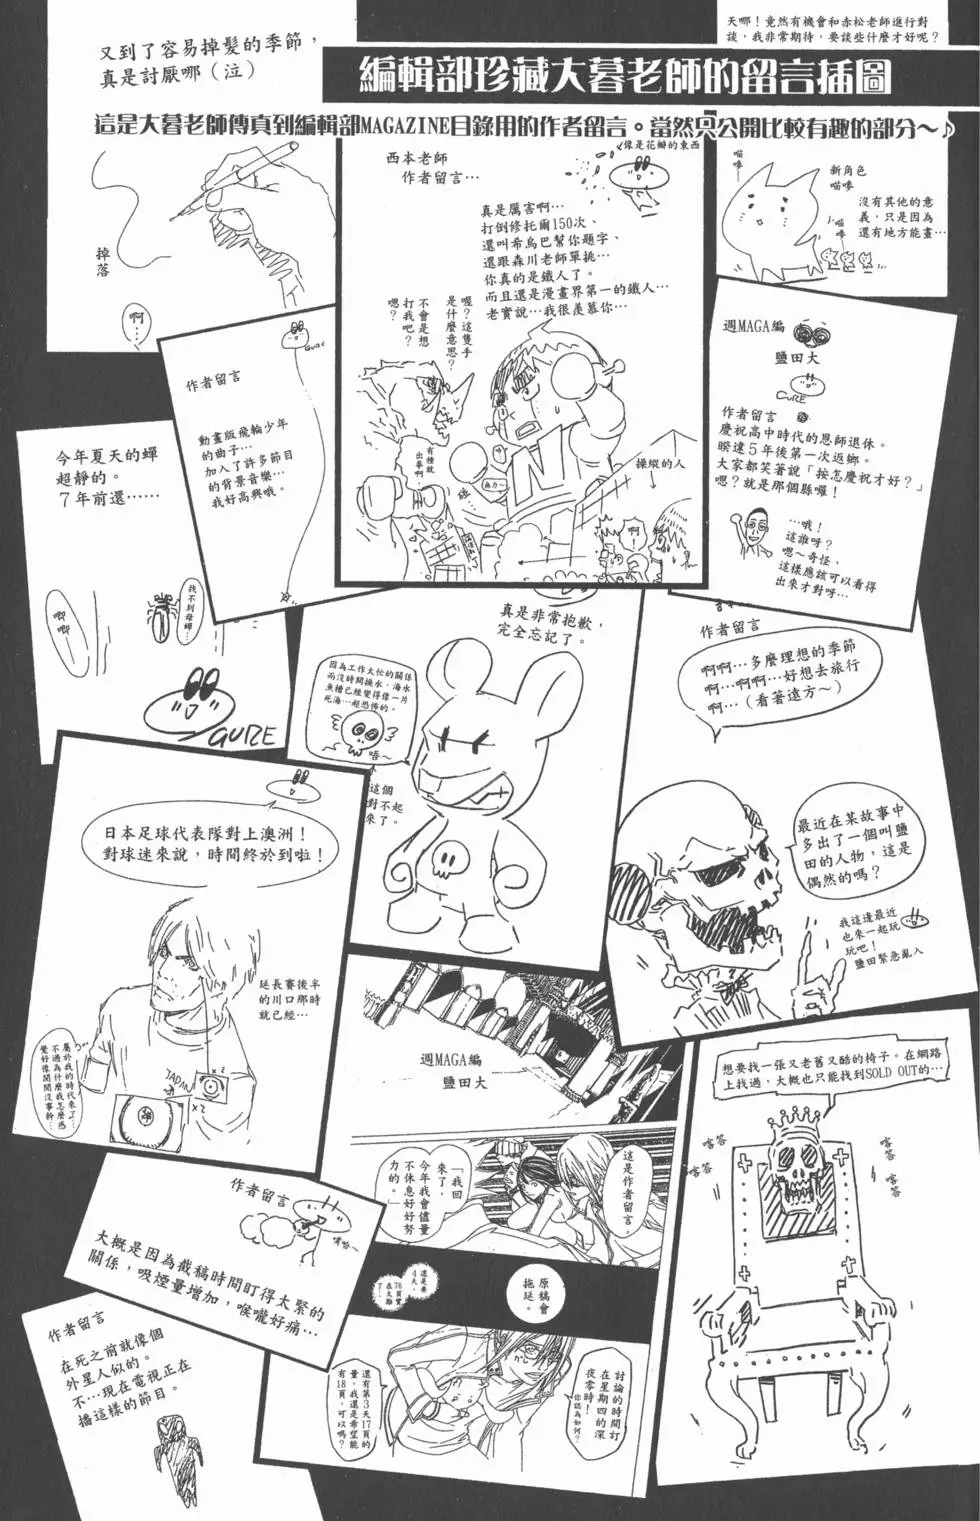 天哪！竟然有機會和赤松老師進行對
談，我非常期待，要談些什麼才好呢？
又到了容易掉髮的季節，
真是討厭哪（泣）
編輯部珍藏大暮老師的留言插圖
這是大暮老師傳真到編輯部MAGAZINE目錄用的作者留言。當然只公開比較有趣的部分～♪
掉落
啊…
像是花瓣的東西
西本老師
作者留言…
真是厲害啊…
打倒修托爾150次、
還叫希烏巴幫你題字、
還跟森川老師單挑…
你真的是鐵人了。
而且還是漫畫界第一的鐵人…
老實說…我很羨慕你…
喔？這隻手
是什麼意思？
不會是想
打我吧？
嗯？
有種就
出拳啊
無力～
操縱的人
啊
喵嗲
新角色
喵嗲
沒有其他的意
義，只是因為
還有地方能畫…
喵嗲
週MAGA編
鹽田大
GURE
作者留言
慶祝高中時代的恩師退休。
睽違5年後第一次返鄉。
大家都笑著說「按怎慶祝才好？」
嗯？就是那個縣囉！
…哦！
這誰呀？
嗯～奇怪，
這樣應該可以看得
出來才對呀…
GURE
作者留言
動畫版飛輪少年
的曲子…
加入了許多節目
的背景音樂…
我好高興哦。
今年夏天的蟬
超靜的。
7年前還……
唧唧
找不到母蟬…
GURE
真是非常抱歉，
完全忘記了。
因為工作太忙的關係
而沒時間換水，海水
魚槽已經變得像一片
死海…超恐怖的。
唔～
這個
對不起
來了。
作者留言
啊啊…多麼理想的季節
啊…啊啊…好想去旅行
啊…（看著遠方～）
最近在某故事中
多出了一個叫鹽
田的人物，這是
偶然的嗎？
我這邊最近
也來一起玩
玩吧！
鹽田緊急亂入
日本足球代表隊對上澳洲！
對球迷來說，時間終於到啦！
延長賽後半
的川口那時
就已經…
屬於我的時代來了…
不過為什麼我怎麼感
覺好像閒閒沒事幹…
JAPAN
×2
×2
週MAGA編
鹽田大
這是作者留言。
「我回
來了，
今年我會儘量
不休息好好努
力的。」
原稿會
拖延。
還是希
4天，
76頁實
在太難
了…
討論的時間訂
在星期四的深
夜零時！
你認為如何？
還有第3天17頁的
量，我還是希望能
有18頁，可以嗎？
想要找一張又老舊又酷的椅子。在網路
上找過，大概也只能找到SOLD OUT的…
喀答
喀答
喀答
喀答
作者留言
咳哈～
大概是因為截稿時間盯得太緊的
關係，吸煙量增加，喉嚨好痛…
作者留言
在死之前就像個
外星人似的。
不…現在電視正在
播這樣的節目。